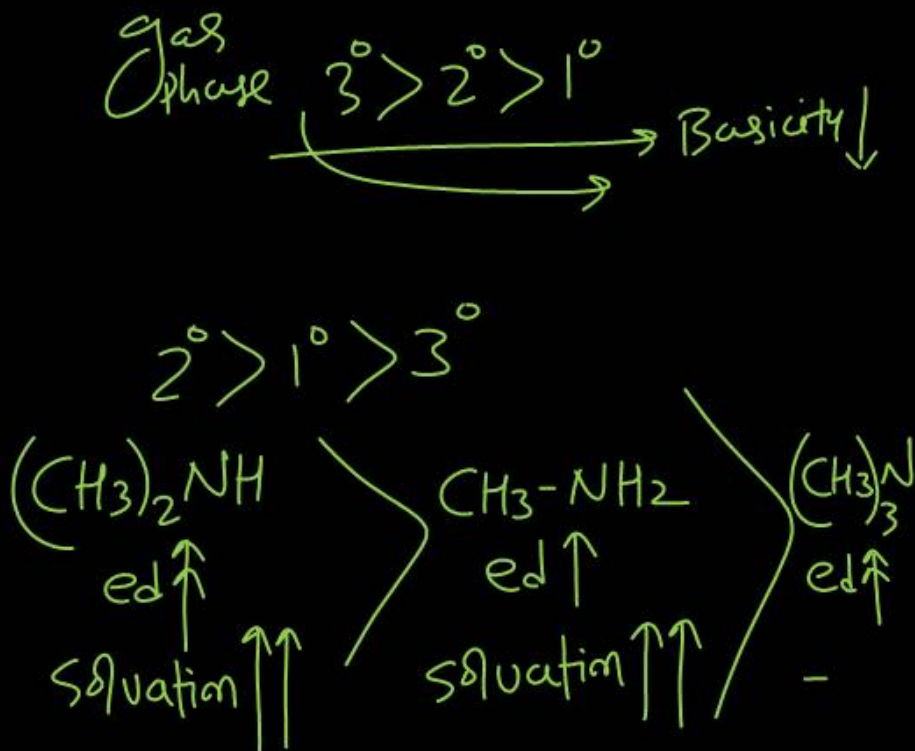 gas
phase 3° > 2° > 1°
Basicity ↓
2° > 1° > 3°
(CH3)2NH > CH3-NH2 > (CH3)3N
ed ↑ ed ↑ ed ↑
solvation ↑↑ solvation ↑↑ -